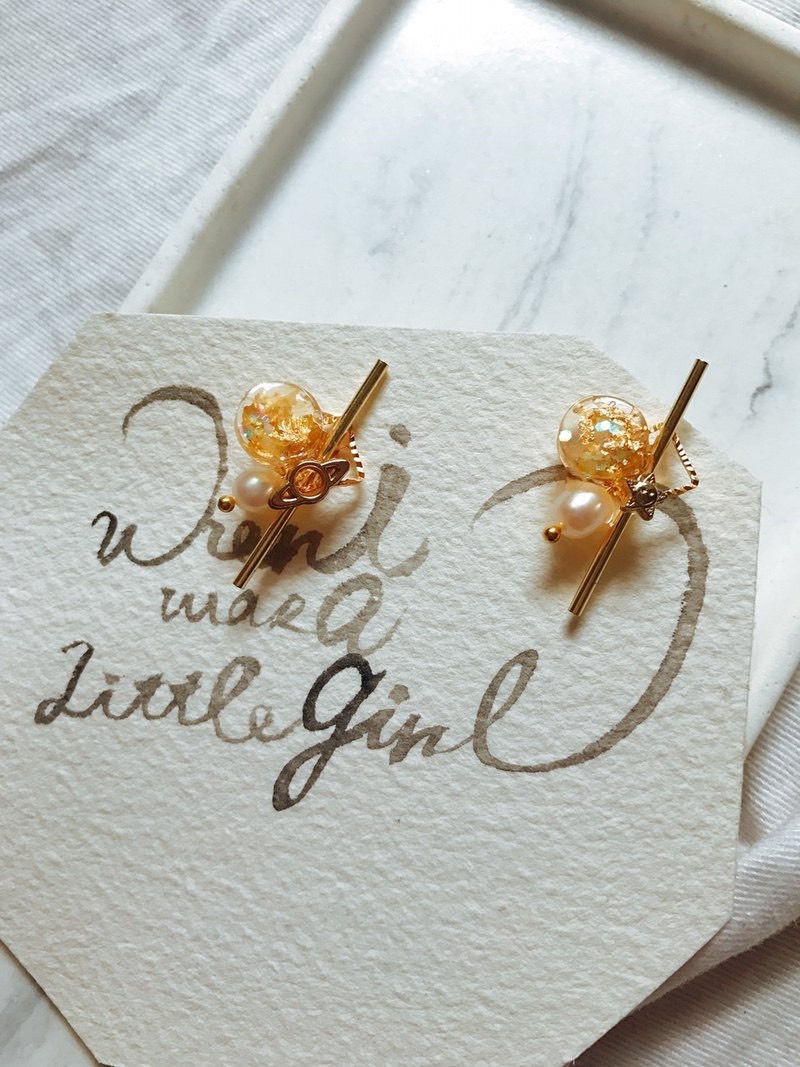 When i
was a
Little girl